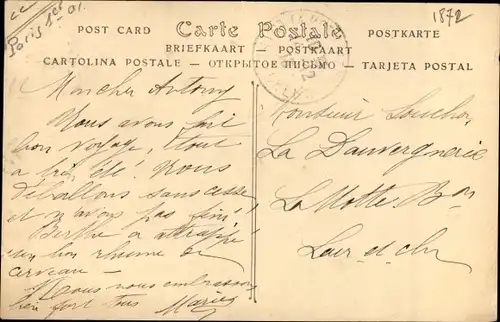 1872
Paris 1er 01.
POST CARD Carte Postale POSTKARTE
BRIEFKAART — POSTKAART
CARTOLINA POSTALE — ОТКРЫТОЕ ПИСЬМО — TARJETA POSTAL
Mon cher Antony
Nous avons fait
bon voyage, tout
a très été! Nous
déballons sans cesse
et n'avons pas fini!
Berthe a attrapé
un bon rhume de
cerveau —
Nous vous embrassons
bien fort tous Marie
Monsieur Louchon
La Dauvergnerie
La Motte Bon
Loir et cher